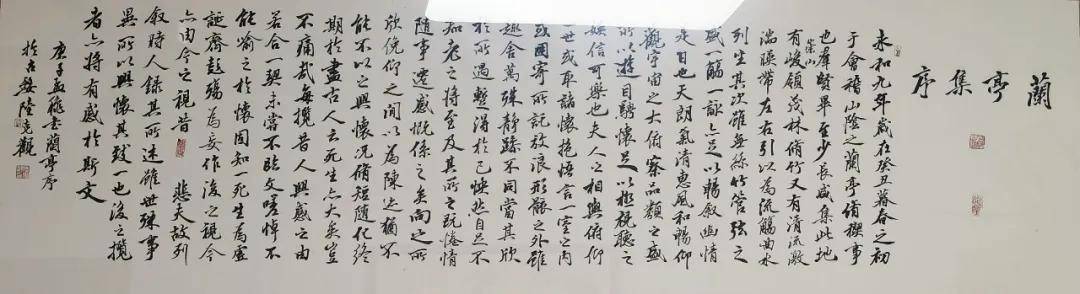 蘭亭集序
永和九年歲在癸丑暮春之初
于會稽山陰之蘭亭脩禊事
也群賢畢至少長咸集此地
有崇山峻領茂林脩竹又有清流激
湍暎帶左右引以為流觴曲水
列坐其次雖無絲竹管弦之
盛一觴一詠亦足以暢敘幽情
是日也天朗氣清惠風和暢仰
觀宇宙之大俯察品類之盛
所以遊目騁懷足以極視聽之
娛信可樂也夫人之相與俯仰
一世或取諸懷抱悟言一室之內
或因寄所託放浪形骸之外雖
趣舍萬殊靜躁不同當其欣
於所遇蹔得於己怏然自足不
知老之將至及其所之既惓情
隨事遷感慨係之矣向之所
欣俛仰之間以為陳迹猶不
能不以之興懷況脩短隨化終
期於盡古人云死生亦大矣豈
不痛哉每攬昔人興感之由
若合一契未嘗不臨文嗟悼不
能喻之於懷固知一死生為虛
誕齊彭殤為妄作後之視今
亦由今之視昔 悲夫故列
敘時人錄其所述雖世殊事
異所以興懷其致一也後之攬
者亦將有感於斯文
庚子孟秋書蘭亭序
於古陸克觀